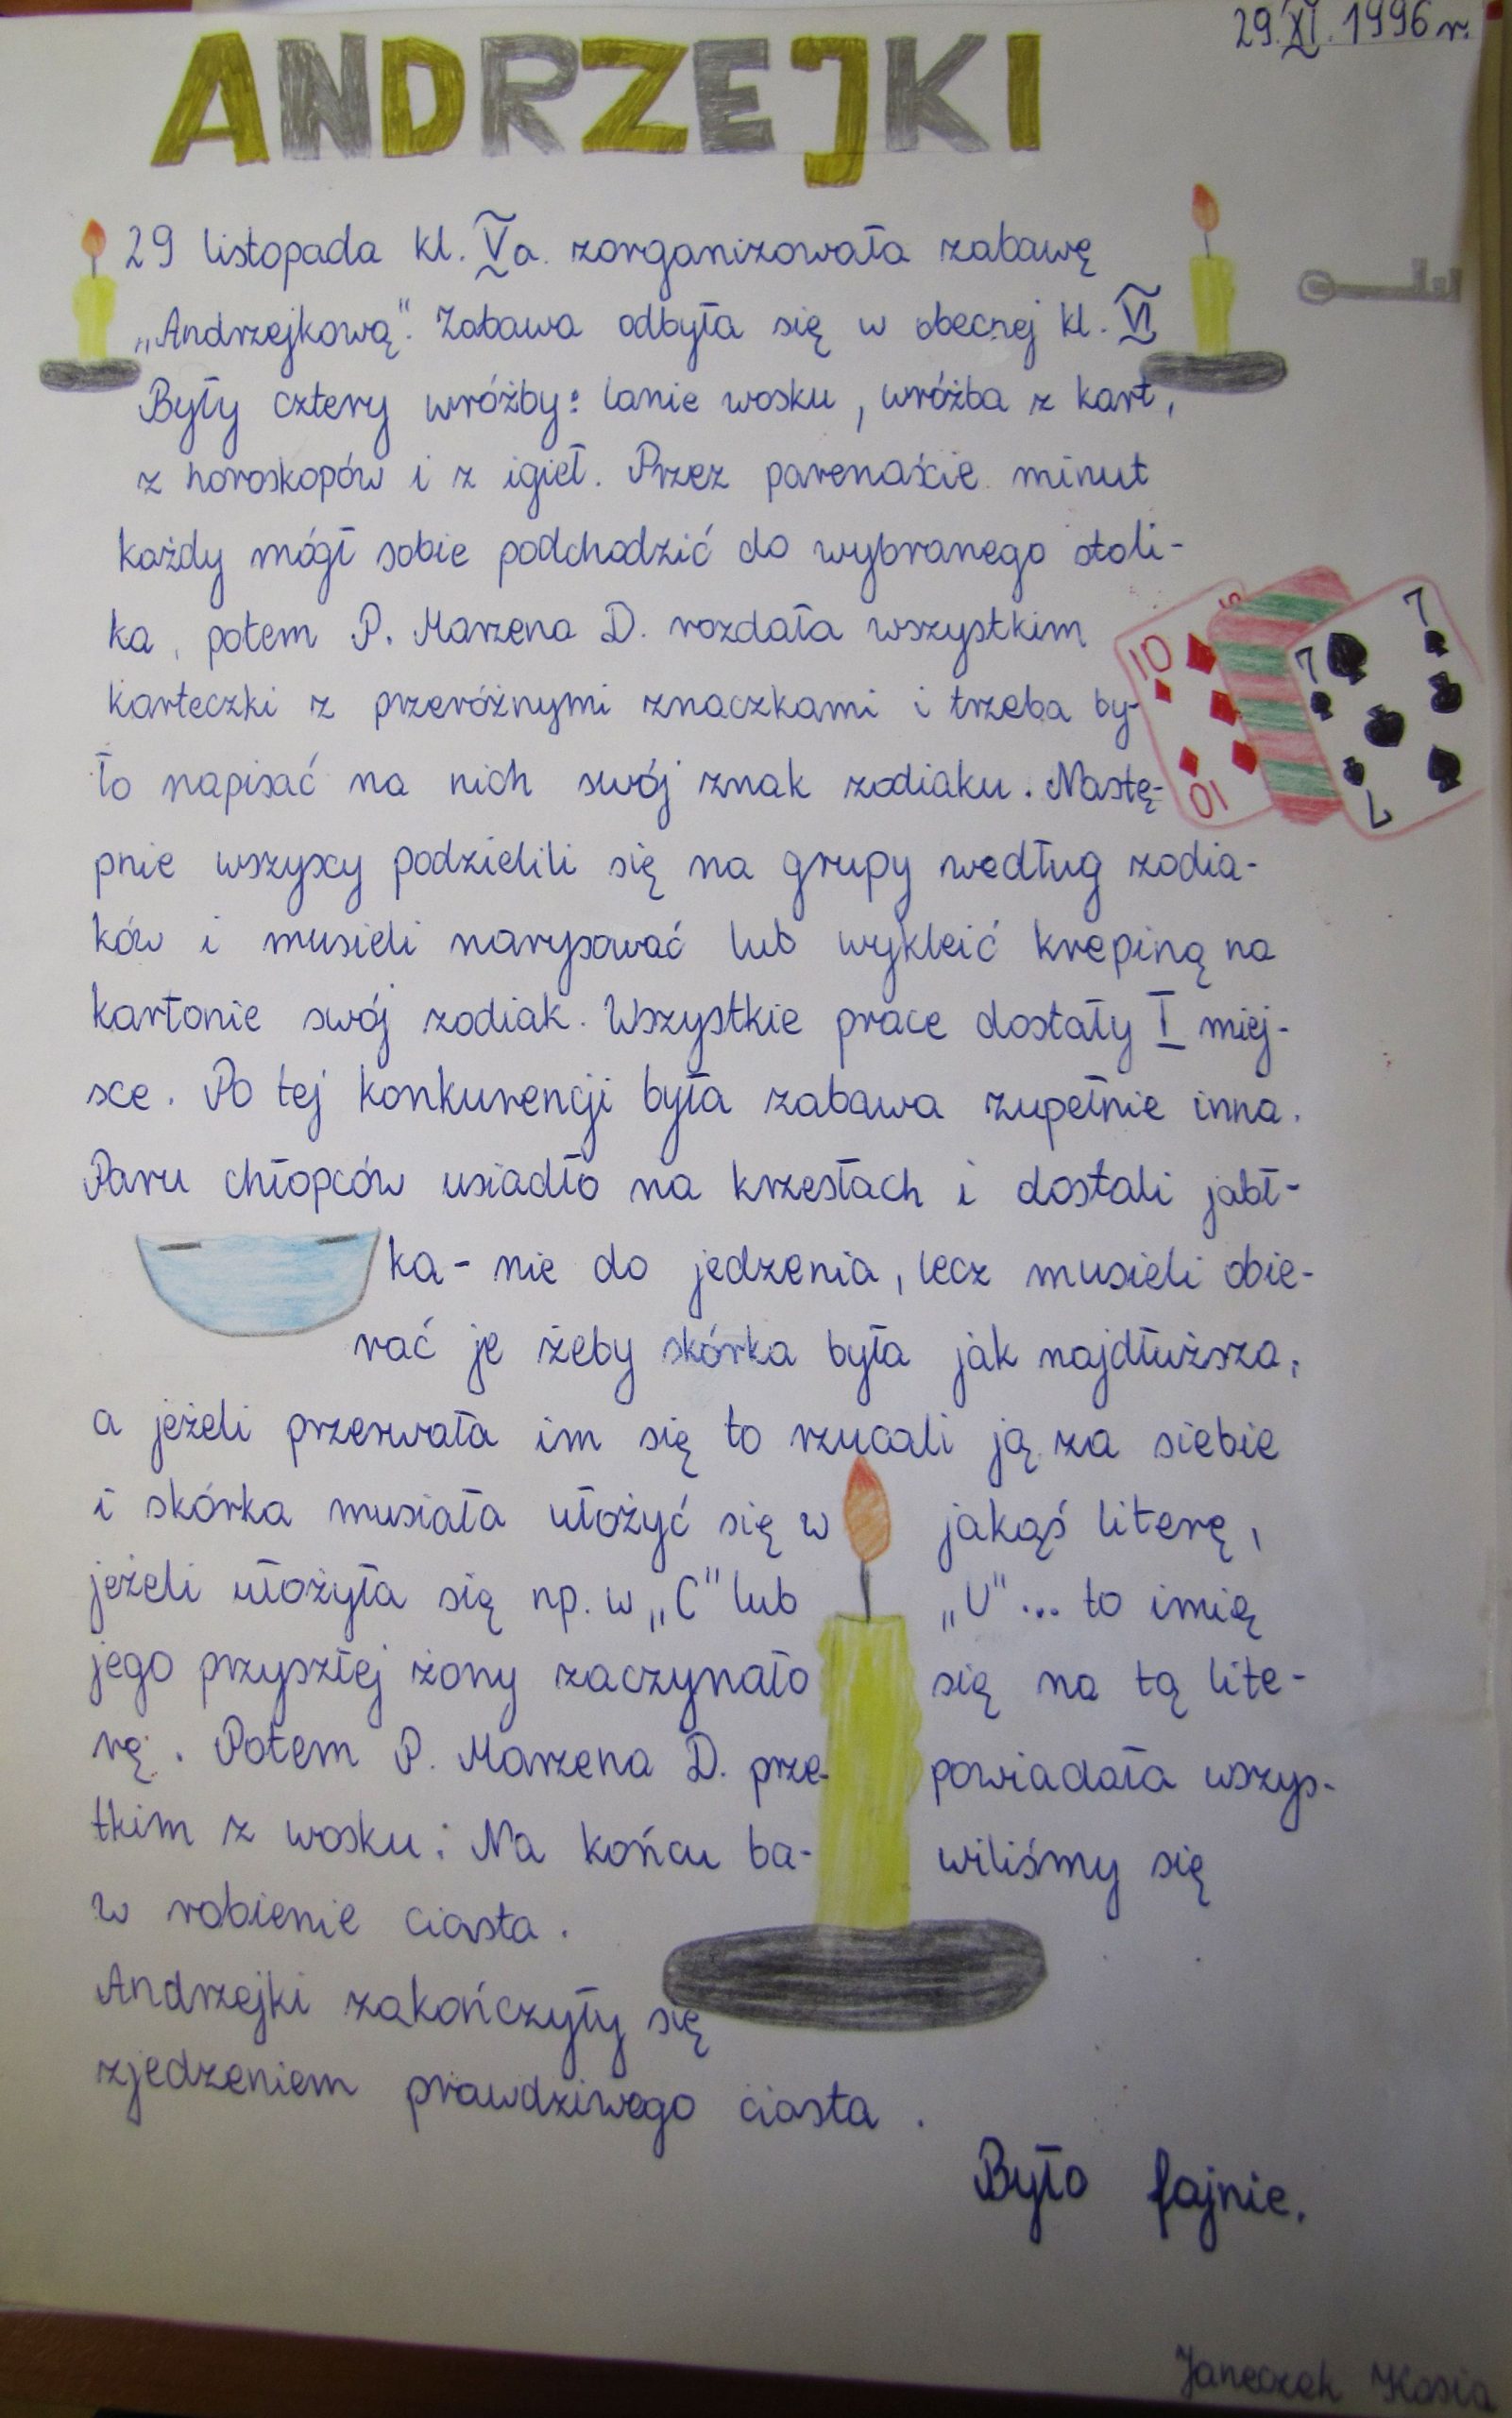 29.XI.1996 r.
ANDRZEJKI
29 listopada kl. Va. zorganizowała zabawę
„Andrzejkową". Zabawa odbyła się w obecnej kl. VI
Były cztery wróżby: lanie wosku, wróżba z kart,
z horoskopów i z igieł. Przez parenaście minut
każdy mógł sobie podchodzić do wybranego stoli-
ka, potem P. Marzena D. rozdała wszystkim
karteczki z przeróżnymi znaczkami i trzeba by-
ło napisać na nich swój znak zodiaku. Nastę-
pnie wszyscy podzielili się na grupy według zodia-
ków i musieli narysować lub wykleić krepiną na
kartonie swój zodiak. Wszystkie prace dostały I miej-
sce. Po tej konkurencji była zabawa zupełnie inna.
Paru chłopców usiadło na krzesłach i dostali jabł-
ka - nie do jedzenia, lecz musieli obie-
rać je żeby skórka była jak najdłuższa,
a jeżeli przerwała im się to rzucali ją za siebie
i skórka musiała ułożyć się w jakąś literę,
jeżeli ułożyła się np. w „C" lub „U"... to imię
jego przyszłej żony zaczynało się na tą lite-
rę. Potem P. Marzena D. prze- powiadała wszys-
tkim z wosku. Na końcu ba- wiliśmy się
w robienie ciasta.
Andrzejki zakończyły się
zjedzeniem prawdziwego ciasta.
Było fajnie.
Janeczek Kasia
10
10
7
7
7